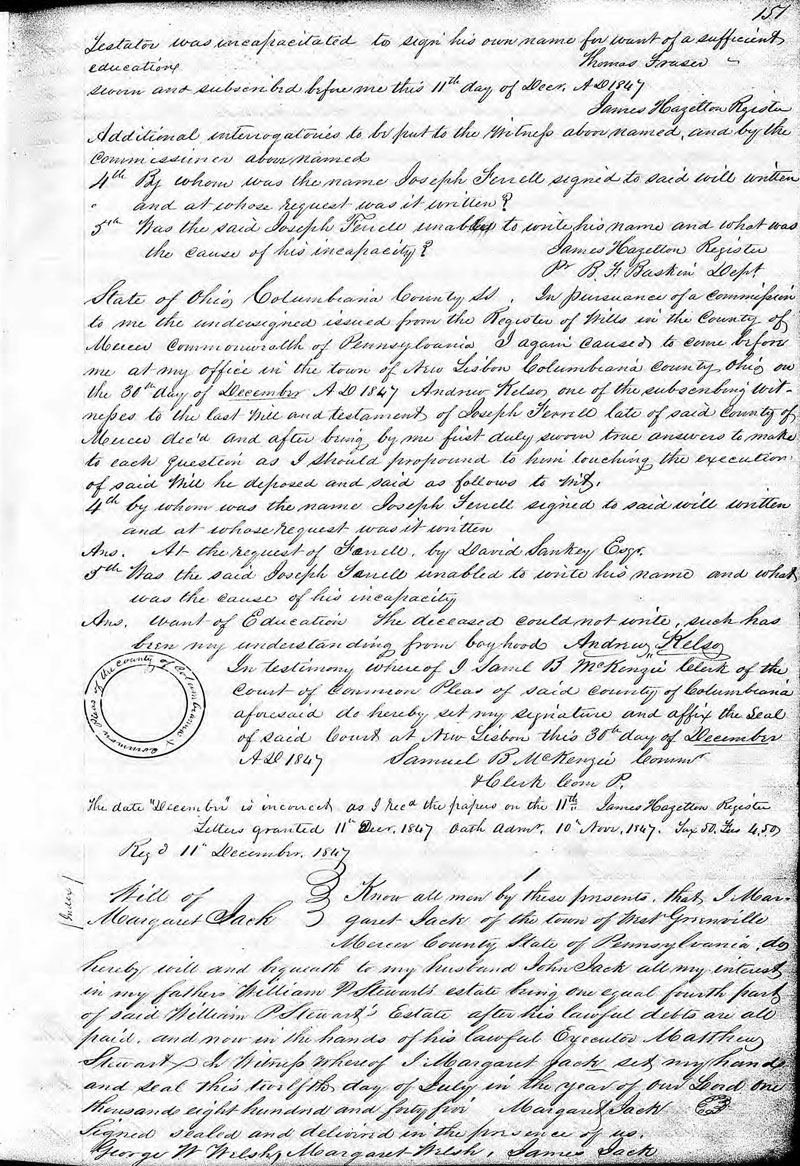 151
Testator was incapacitated to sign his own name for want of a sufficient
education Thomas Fraser
sworn and subscribed before me this 11th day of Decr. AD 1847
James Hazelton Register
Additional interrogatories to be put to the Witness above named, and by the
commissioner above named
4th By whom was the name Joseph Ferrell signed to said will written
" and at whose request was it written?
5th Was the said Joseph Ferrell unable to write his name and what was
the cause of his incapacity? James Hazelton Register
Pr B. F. Baskin Dept
State of Ohio Columbiana County SS. In pursuance of a commission
to me the undersigned issued from the Register of Wills in the County of
Mercer Commonwealth of Pennsylvania I again caused to come before
me at my office in the town of New Lisbon Columbiana county Ohio on
the 30th day of December AD 1847 Andrew Kelso one of the subscribing wit-
nesses to the last Will and testament of Joseph Ferrell late of said County of
Mercer dec'd and after being by me first duly sworn true answers to make
to each question as I should propound to him touching the execution
of said Will he deposed and said as follows to Wit.
4th by whom was the name Joseph Ferrell signed to said will written
and at whose request was it written
Ans. At the request of Ferrell, by David Sankey Esqr.
5th Was the said Joseph Ferrell unabled to write his name and what
was the cause of his incapacity
Ans. want of Education The deceased could not write, such has
been my understanding from boyhood Andrew Kelso
Common Pleas of the county of Columbiana
In testimony whereof I Saml B McKenzie Clerk of the
Court of Common Pleas of said county of Columbiana
aforesaid do hereby set my signature and affix the Seal
of said Court at New Lisbon this 30th day of December
AD 1847 Samuel B McKenzie Commr
& Clerk Com P.
The date "December" is incorrect as I Recd the papers on the 11th James Hazelton Register
Letters granted 11th Decr. 1847 Oath Admr. 10th Novr. 1847. Tax 50. Fees 4.50
Regd 11th December. 1847
Index
Will of
Margaret Jack
Know all men by these presents. that I Mar-
garet Jack of the town of West Greenville
Mercer County State of Pennsylvania, do
hereby will and bequeath to my husband John Jack all my interest
in my fathers William P Stewart's estate being one equal fourth part
of said William P Stewart's Estate after his lawful debts are all
paid. and now in the hands of his lawful Executor Matthew
Stewart In Witness whereof I Margaret Jack set my hand
and seal this twelfth day of July in the year of our Lord one
thousand eight hundred and forty five Margaret Jack
Signed sealed and delivered in the presence of us.
George W Welsh, Margaret Welsh, James Jack